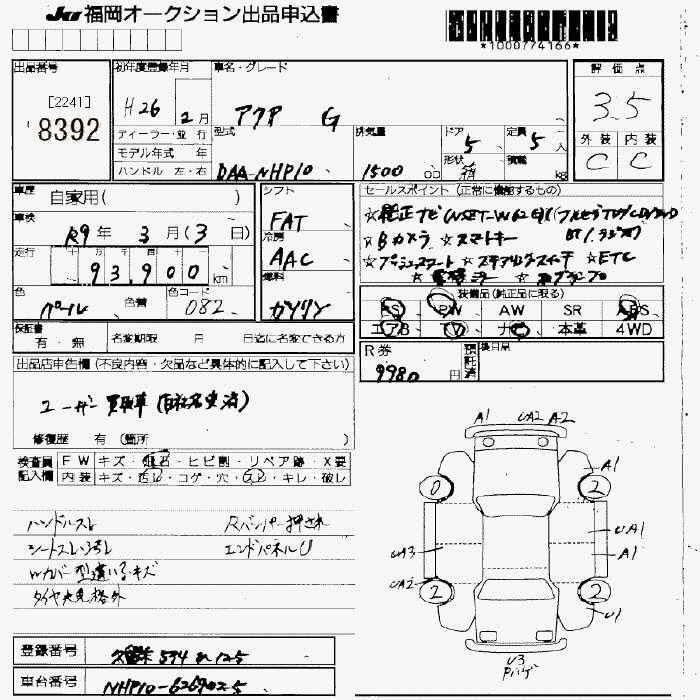 JU 福岡オークション出品申込書
*1000774166*
出品番号
[2241]
8392
初年度登録年月
H26 2月
ディーラー・並行
モデル年式 年
ハンドル 左・右
車名・グレード
アクア G
型式
DAA-NHP10
排気量
1500 cc
ドア
5
形状
箱
定員
5人
積載
kg
評価点
3.5
外装 内装
C C
車歴
自家用( )
車検
R9年 3月(3日)
走行
93,900 km
色
パール
色替
色コード
082
シフト
FAT
冷房
AAC
燃料
ガソリン
セールスポイント (正常に機能するもの)
☆純正ナビ
☆Bカメラ ☆スマートキー
☆プッシュスタート ☆ステアリングスイッチ ☆ETC
装備品(純正品に限る)
PS PW AW SR ABS
エアB TV ナビ 本革 4WD
保証書
有・無
名変期限 月 日迄に名変できる方
R券
9980円
預託済
後日品
出品店申告欄 (不良内容・欠品など具体的に記入して下さい)
ユーザー買取車(自社名変済)
修復歴 有 (箇所 )
検査員
記入欄
FW キズ・飛石・ヒビ割・リペア跡・X要
内装 キズ・汚レ・コゲ・穴・スレ・キレ・破レ
ハンドルスレ
シートスレ・汚レ
Wカバー型違い・キズ
タイヤ大見格外
Rバンパー押され
エンドパネルU
A1 UA2 A2
A1
0 2
UA1
A1
UA3
UA2
2 2
U1
U3
Pハゲ
登録番号
久留米 534
車台番号
NHP10-6269025